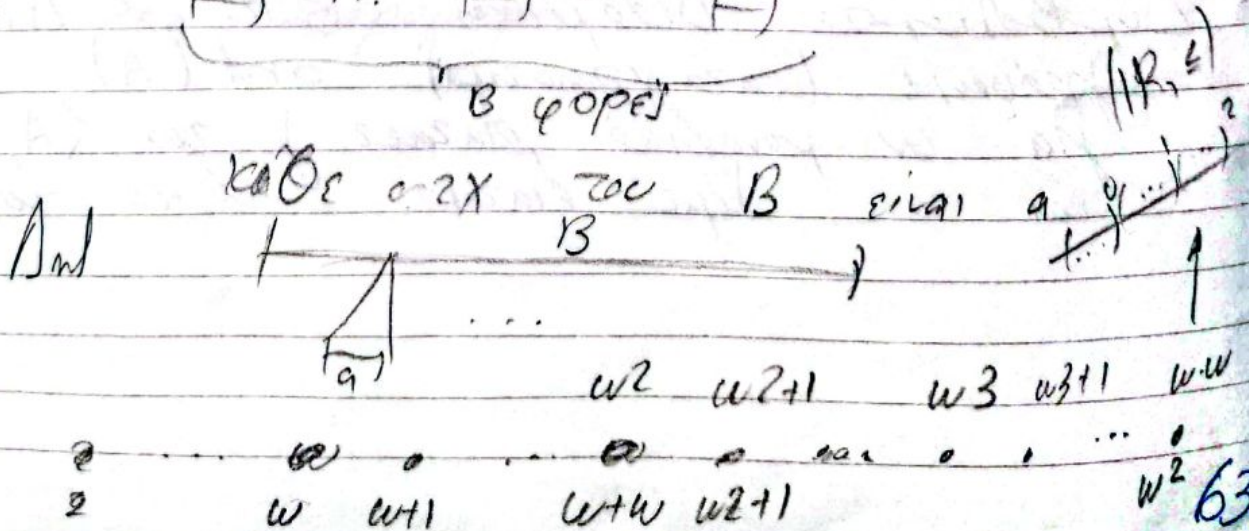 B φορές
(ℝ, ≤)
κάθε στχ του B είναι a
Δηλ B
a
...
ω2 ω2+1 ω3 ω3+1 ω·ω
... ... ... ...
2 ω ω+1 ω+ω ω2+1 ω² 63